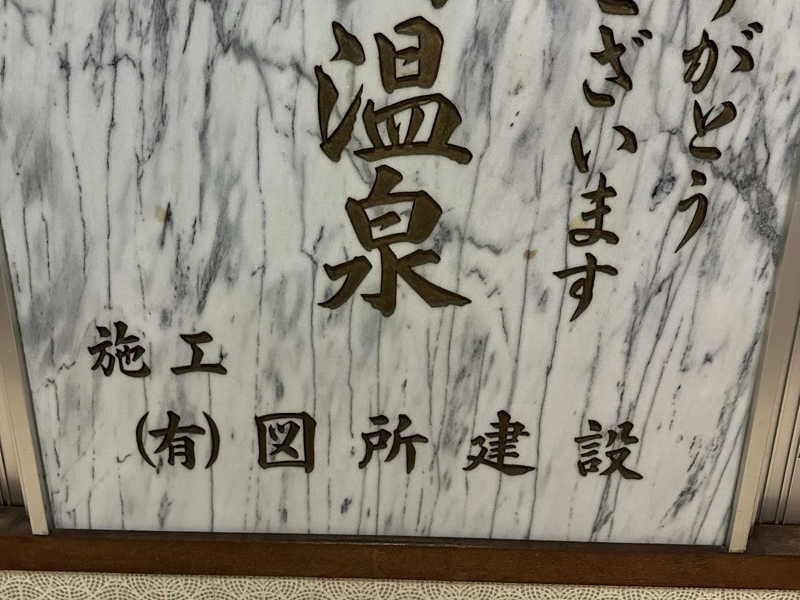 がとう
ざいます
温泉
施工
(有)図所建設